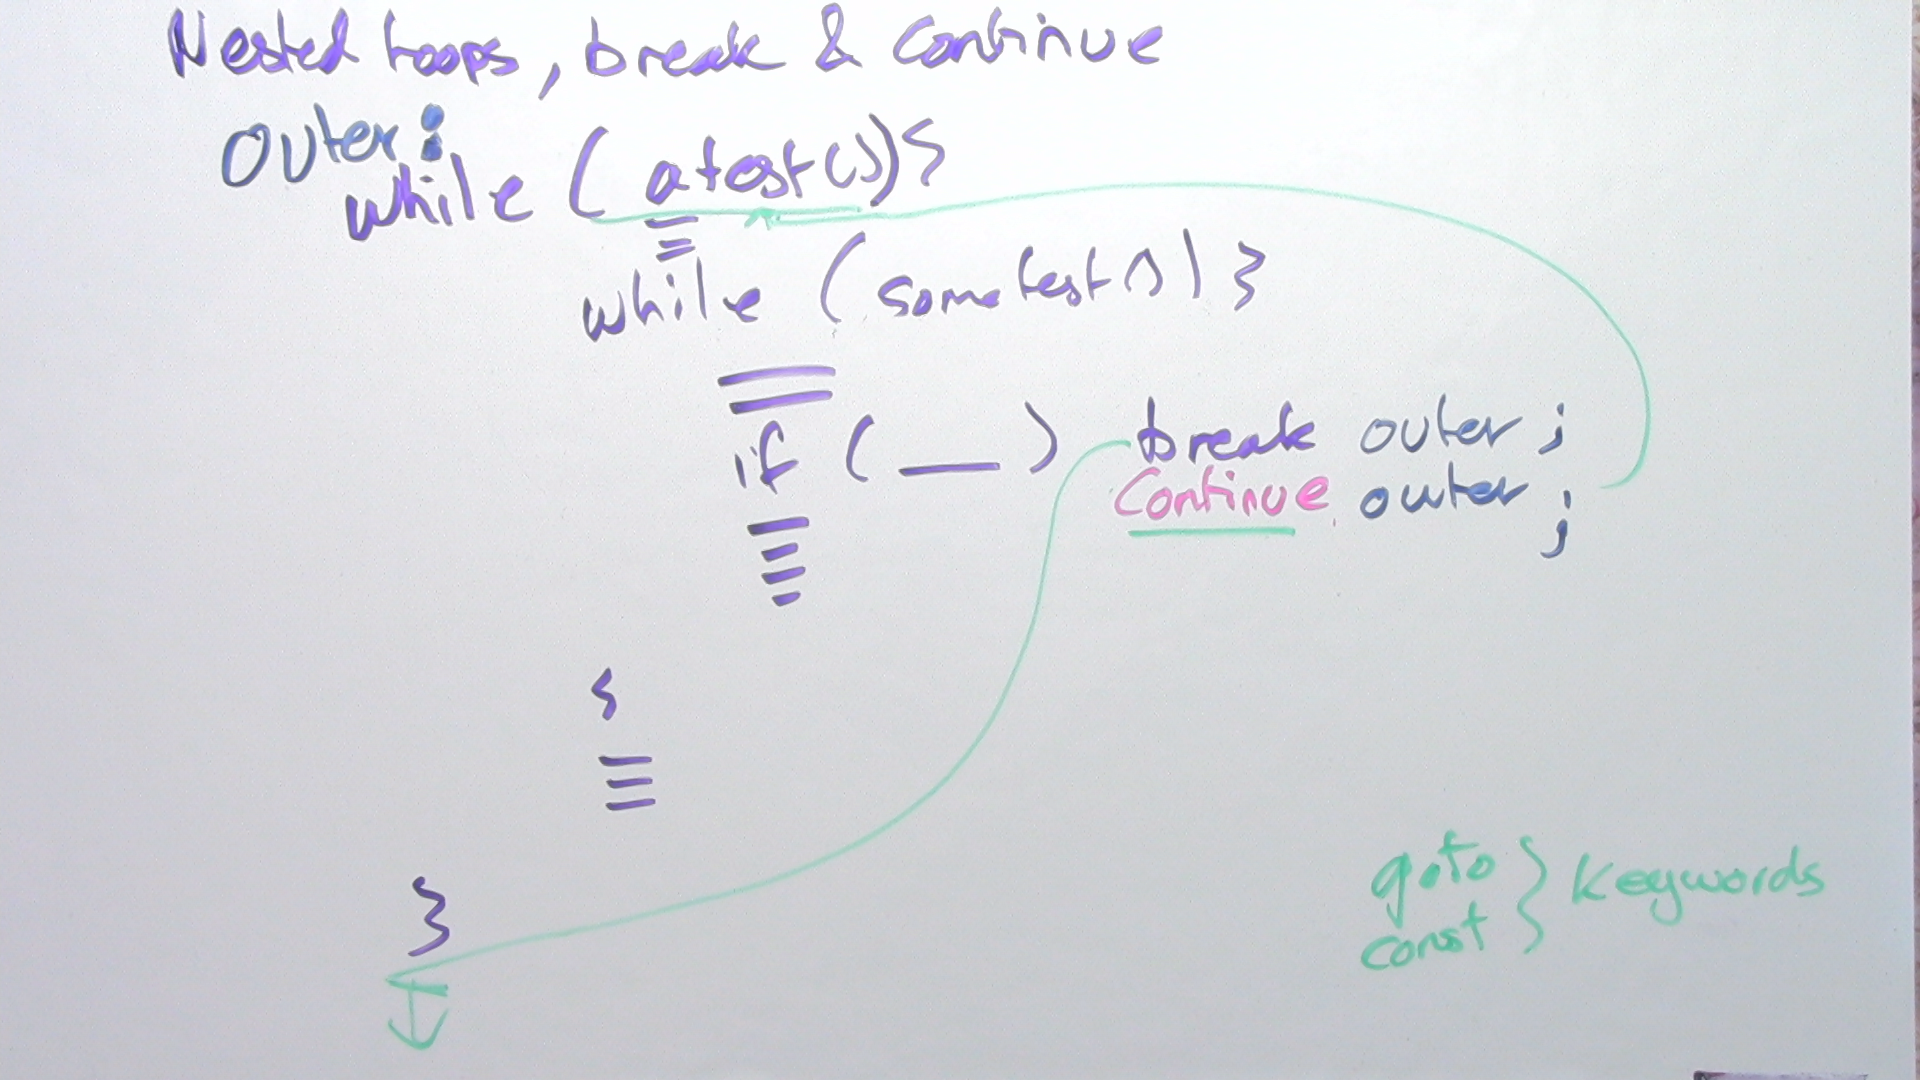 Nested loops, break & continue
Outer:
while (atest()){
while (sometest()) }
if ( __ ) break outer;
continue outer;
{
}
goto } keywords
const